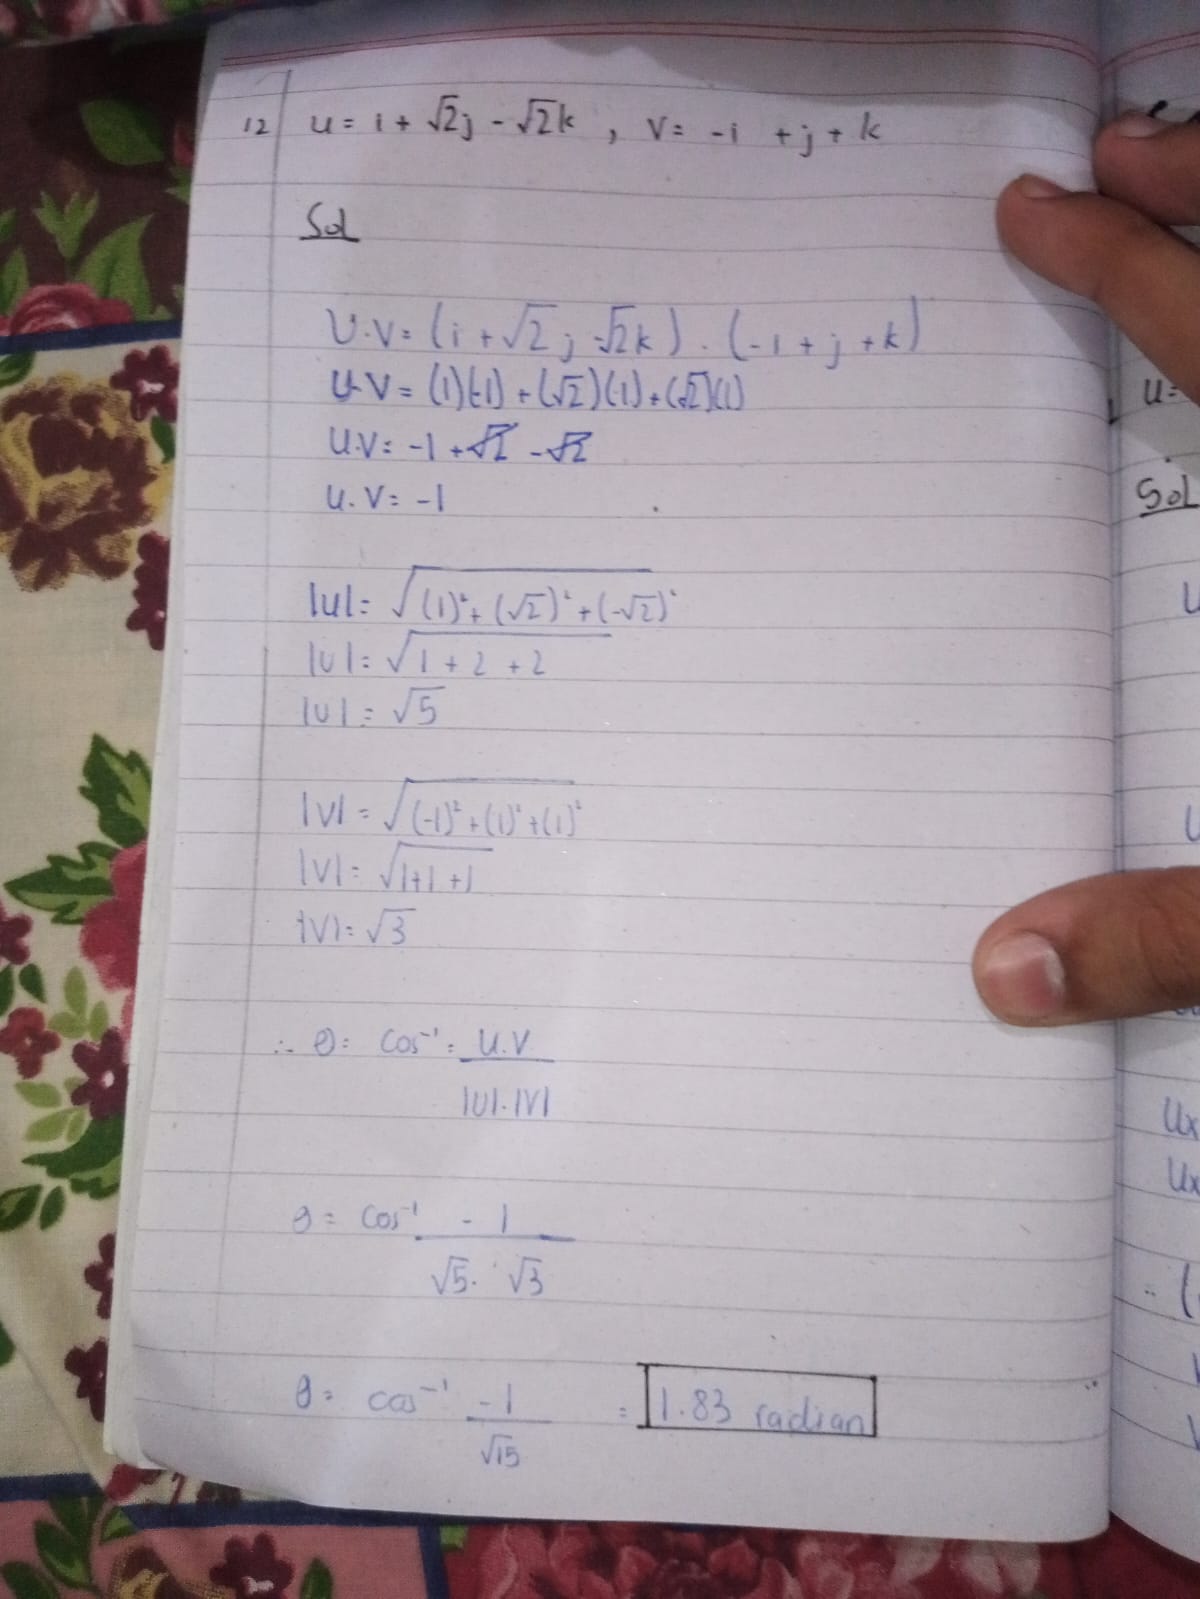 12 u = i + √2j - √2k , v = -i + j + k
Sol
U.V = (i + √2 j -√2k) . (-i + j + k)
U.V = (1)(-1) + (√2)(1) + (-√2)(1)
U.V = -1 + √2 - √2
U.V = -1
|u| = √(1)² + (√2)² + (-√2)²
|U| = √1 + 2 + 2
|U| = √5
|V| = √(-1)² + (1)² + (1)²
|V| = √1+1+1
|V| = √3
∴ θ = cos⁻¹ = U.V
|U|.|V|
θ = cos⁻¹ -1
√5 . √3
θ = cos⁻¹ -1 = 1.83 radian
√15
u =
Sol
U
U
Ux
Ux